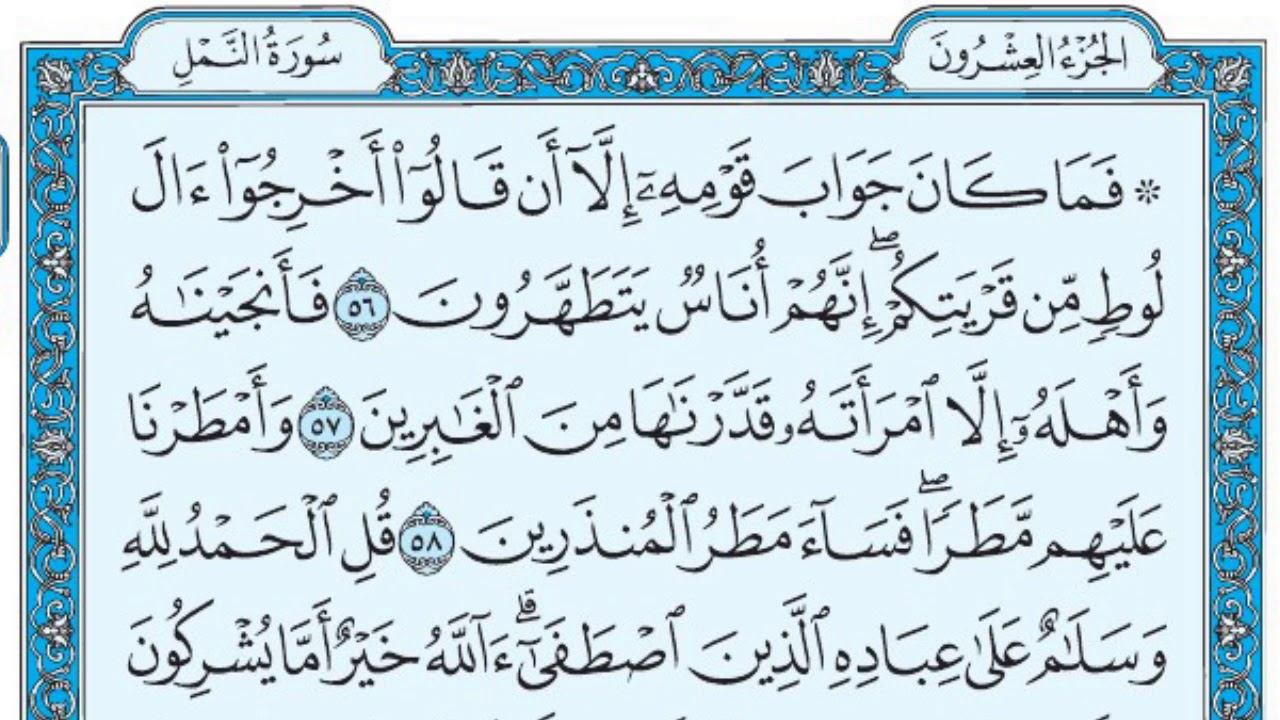 الجُزْءُ العِشْرُونَ
سُورَةُ النَّمْلِ
* فَمَا كَانَ جَوَابَ قَوْمِهِۦٓ إِلَّآ أَن قَالُوٓا۟ أَخْرِجُوٓا۟ ءَالَ
لُوطٍ مِّن قَرْيَتِكُمْ ۖ إِنَّهُمْ أُنَاسٌ يَتَطَهَّرُونَ ٥٦ فَأَنجَيْنَـٰهُ
وَأَهْلَهُۥٓ إِلَّا ٱمْرَأَتَهُۥ قَدَّرْنَـٰهَا مِنَ ٱلْغَـٰبِرِينَ ٥٧ وَأَمْطَرْنَا
عَلَيْهِم مَّطَرًا ۖ فَسَآءَ مَطَرُ ٱلْمُنذَرِينَ ٥٨ قُلِ ٱلْحَمْدُ لِلَّهِ
وَسَلَـٰمٌ عَلَىٰ عِبَادِهِ ٱلَّذِينَ ٱصْطَفَىٰٓ ۗ ءَآللَّهُ خَيْرٌ أَمَّا يُشْرِكُونَ